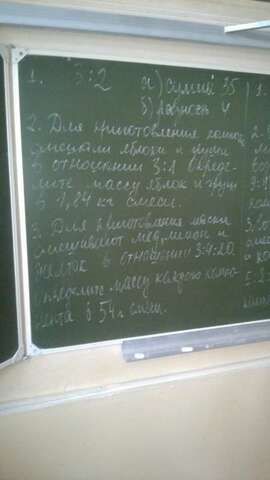 1. 3:2 а) сумма 35
б) разность 4
2. Для приготовления
смешали яблоки и груши
в отношении 3:1 опреде-
лите массу яблок и груш
в 1,84 кг смеси.
3. Для приготовления маски
смешивают мед, лимон и
желток в отношении 3:4:20
определите массу каждого компо-
нента в 54 г смеси.